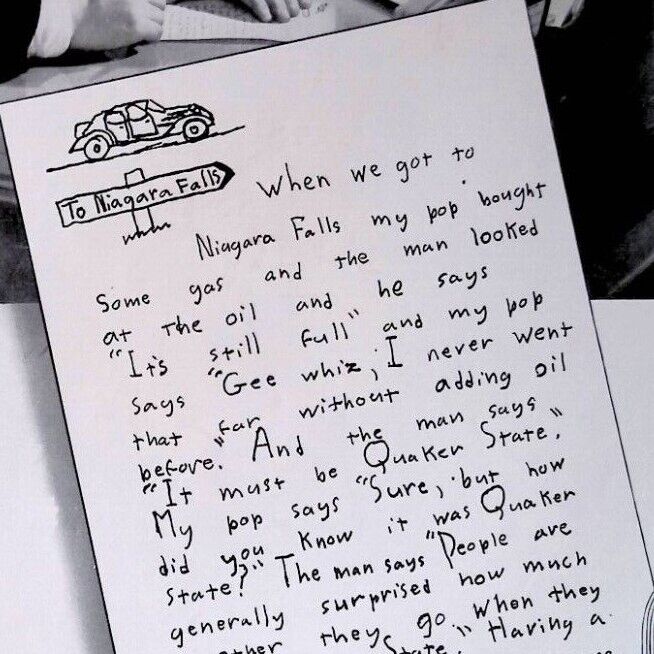 To Niagara Falls
When we got to
Niagara Falls my pop bought
Some gas and the man looked
at the oil and he says
"It's still full" and my pop
says "Gee whiz, I never went
that far without adding oil
before." And the man says
"It must be Quaker State."
My pop says "Sure, but how
did you know it was Quaker
State?" The man says "People are
generally surprised how much
they go when they
State." Having a